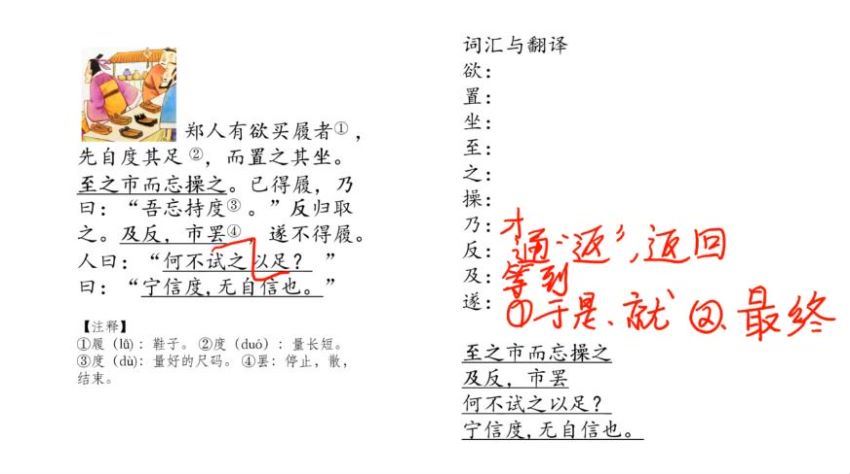 郑人有欲买履者①，
先自度其足②，而置之其坐。
至之市而忘操之。已得履，乃
曰：“吾忘持度③。”反归取
之。及反，市罢④， 遂不得履。
人曰：“何不试之以足？ ”
曰：“宁信度,无自信也。”
【注释】
①履（lǚ）：鞋子。②度（duó）：量长短。
③度（dù）：量好的尺码。④罢：停止，散，
结束。
词汇与翻译
欲：
置：
坐：
至：
之：
操：
乃：才
反：通“返”，返回
及：等到
遂：①于是、就②、最终
至之市而忘操之
及反，市罢
何不试之以足？
宁信度,无自信也。